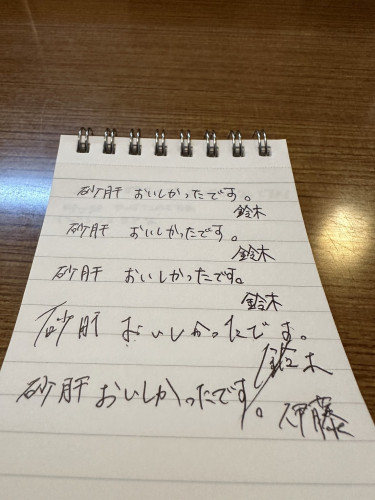 砂肝 おいしかったです。
鈴木
砂肝 おいしかったです。
鈴木
砂肝 おいしかったです。
鈴木
砂肝 おいしかったです。
鈴木
砂肝 おいしかったです。
伊藤